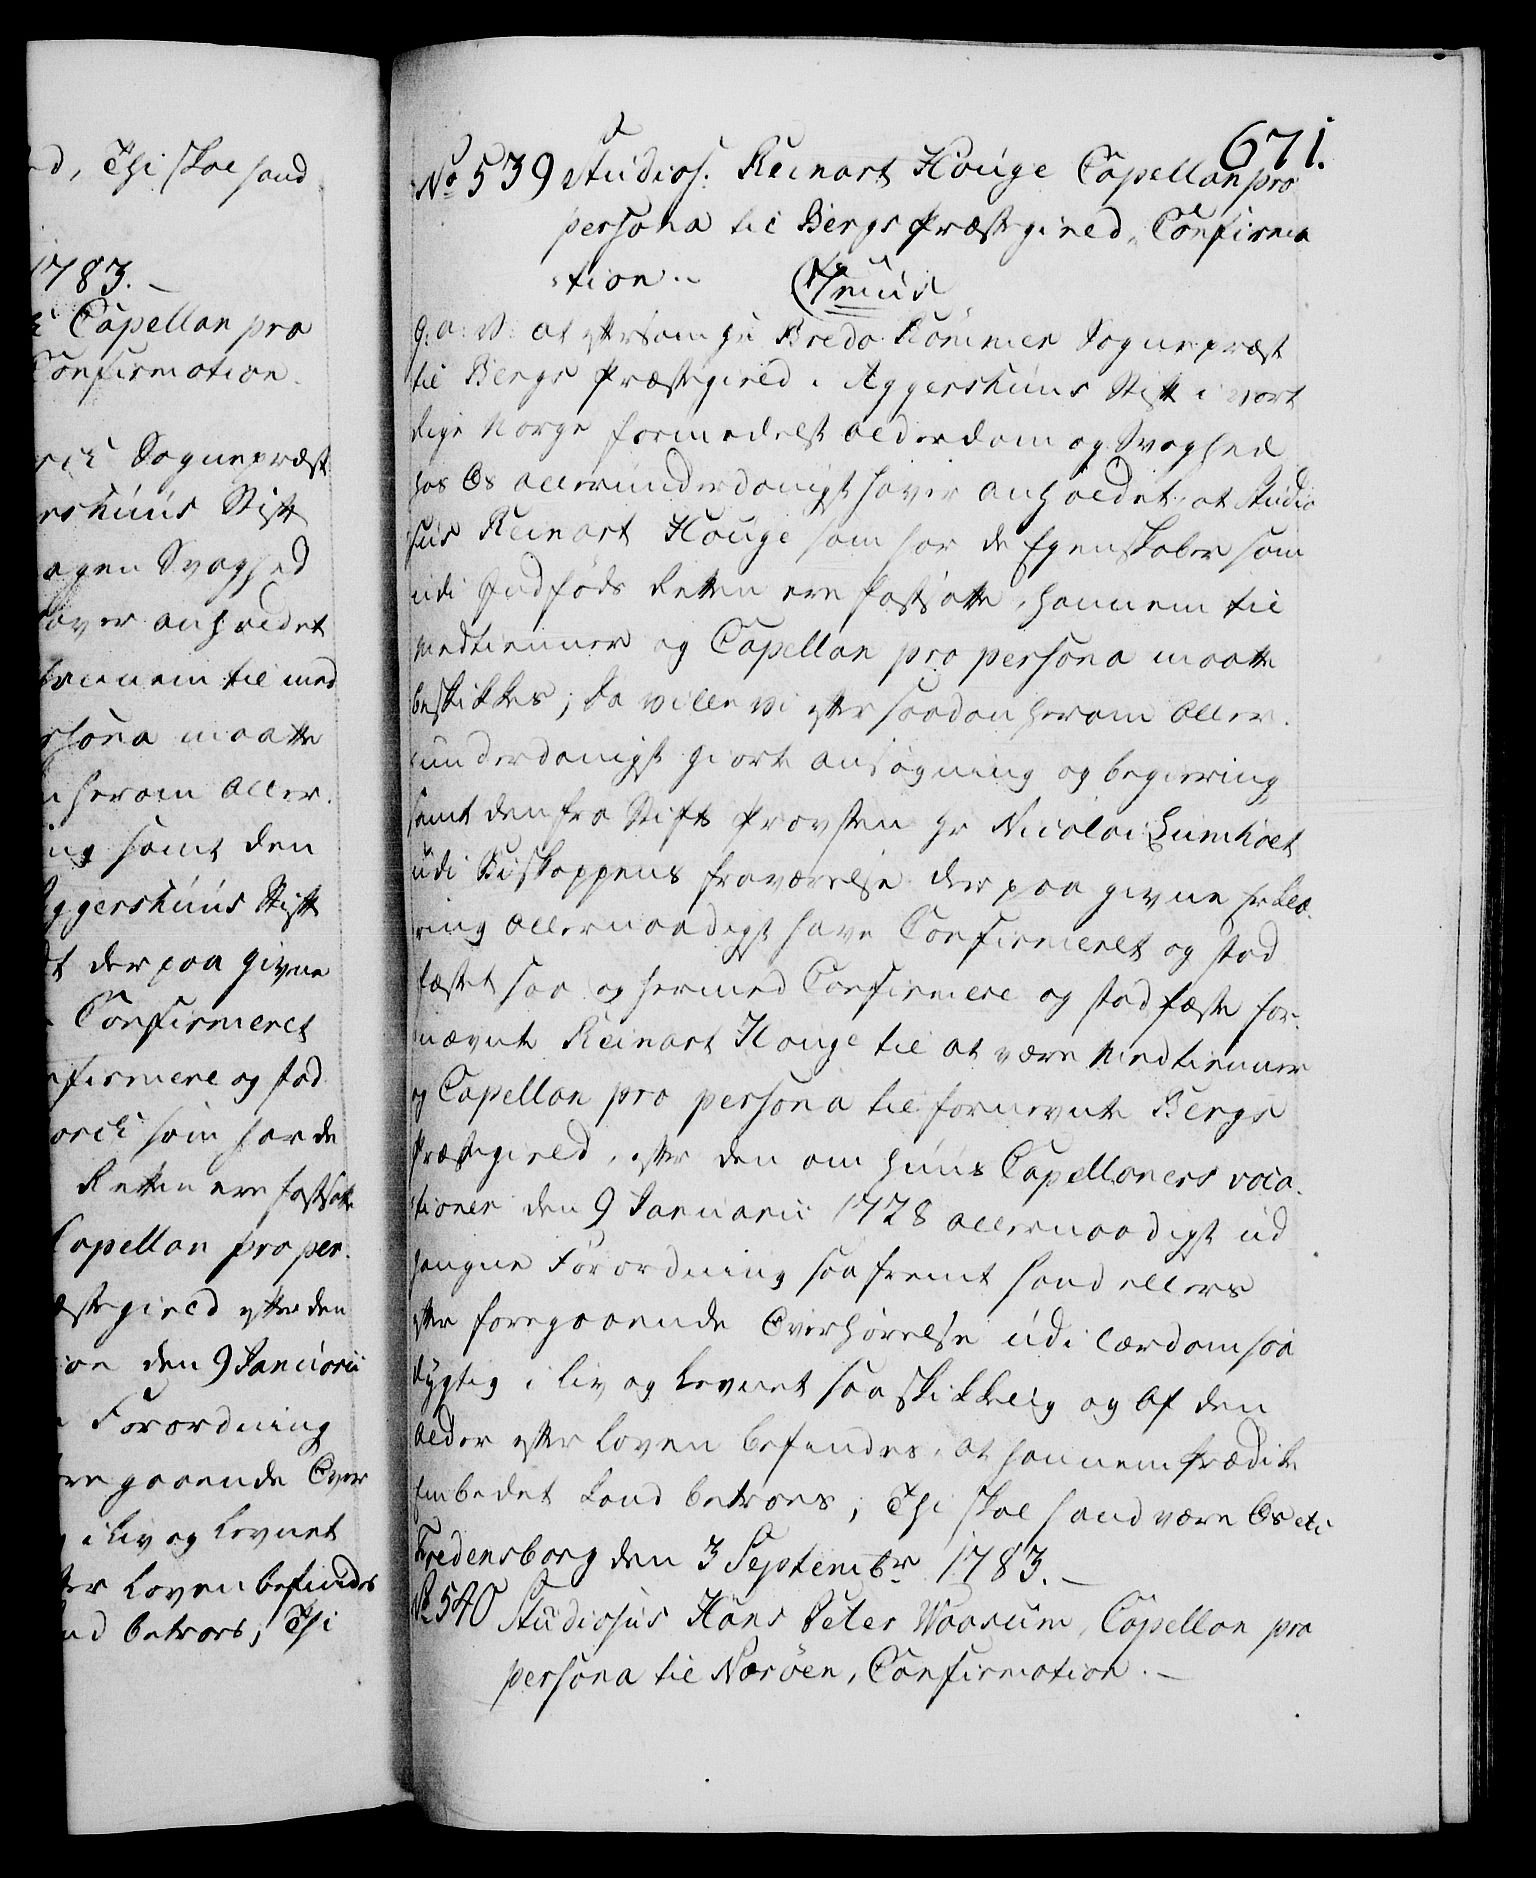 ed, Thi skal hand
1783.-
Capellan pro
Confirmation.
rich Sognepræst
ershuus Stift
agen Svaghed
haver anholdet
hannem til med
rsona maatte
n herom aller.
ing samt den
Aggershuus Stift
t der paa givne
Confirmeret
nfirmere og stad
orch som har de
Retten ere fastsatte
Capellan pro per.
æstegield efter den
ion den 9 Januarii
Forordning
re gaaende Over
g i Liv og Levnet
ter Loven befindes
nd betroes; Thi
671.
No 539 Studios. Reinart Houge Capellan pro
persona til Bergs Præstegield, Confirma
tion.-
G: a: V: at eftersom Hr Bredo Rømmen Sognepræst
til Bergs Præstegield i Aggershuus Stift i vort
Rige Norge formedelst alderdom og Svaghed
hos Os allerunderdanigst haver anholdet, at Studio
sus Reinart Houge som har de Egenskaber som
udi Indføds Retten ere fastsatte, hannem til
Medtienner og Capellan pro persona maatte
beskikkes; da ville Vi efter saadan herom aller.
underdanigst giort ansøgning og begiering
samt den fra Stifts Provsten Hr Nicolai Lumholt
udi Biskoppens fraværelse der paa givne Erklæ.
ring allernaadigst have Confirmeret og stad
fæstet saa og hermed Confirmere og stadfæste for.
nævnte Reinart Houge til at være Medtienner
og Capellan pro persona til fornevnte Bergs
Præstegield, efter den om Huus Capellaners voca.
tioner den 9 Januarii 1728 allernaadigst ud
gangne Forordning saafremt hand ellers
efter foregaaende Overhørelse udi Lærdom saa
dygtig i Liv og Levnet saa skikkelig og af den
alder efter Loven befindes, at hannem Prædike
Embedet kand betroes; Thi skal hand være Os etc
Fredensborg den 3 Septembr 1783.-
No 540 Studiosus Hans Peter Waarum, Capellan pro
persona til Nærøen, Confirmation.-